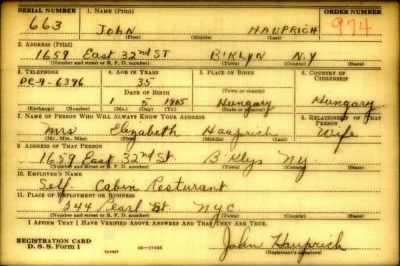 SERIAL NUMBER 1. NAME (Print) ORDER NUMBER
663 JOHN HAUPRICH 974
(First) (Middle) (Last)
2. ADDRESS (Print)
1659 East 32nd ST B'KLYN N.Y
(Number and street or R. F. D. number) (Town) (County) (State)
3. TELEPHONE 4. AGE IN YEARS 5. PLACE OF BIRTH 6. COUNTRY OF CITIZENSHIP
DE-9-6396 35 Hungary Hungary
DATE OF BIRTH (Town or county)
1 5 1905
(Exchange) (Number) (Mo.) (Day) (Yr.) (State or country)
7. NAME OF PERSON WHO WILL ALWAYS KNOW YOUR ADDRESS 8. RELATIONSHIP OF THAT PERSON
Mrs Elizabeth Hauprich Wife
(Mr., Mrs., Miss) (First) (Middle) (Last)
9. ADDRESS OF THAT PERSON
1659 East 32nd St. B'klyn N.Y.
(Number and street or R. F. D. number) (Town) (County) (State)
10. EMPLOYER'S NAME
Self Cabin Resturant
11. PLACE OF EMPLOYMENT OR BUSINESS
244 Pearl St. NYC
(Number and street or R. F. D. number) (Town) (County) (State)
I AFFIRM THAT I HAVE VERIFIED ABOVE ANSWERS AND THAT THEY ARE TRUE.
REGISTRATION CARD
D. S. S. Form 1 John Hauprich
(Registrant's signature)